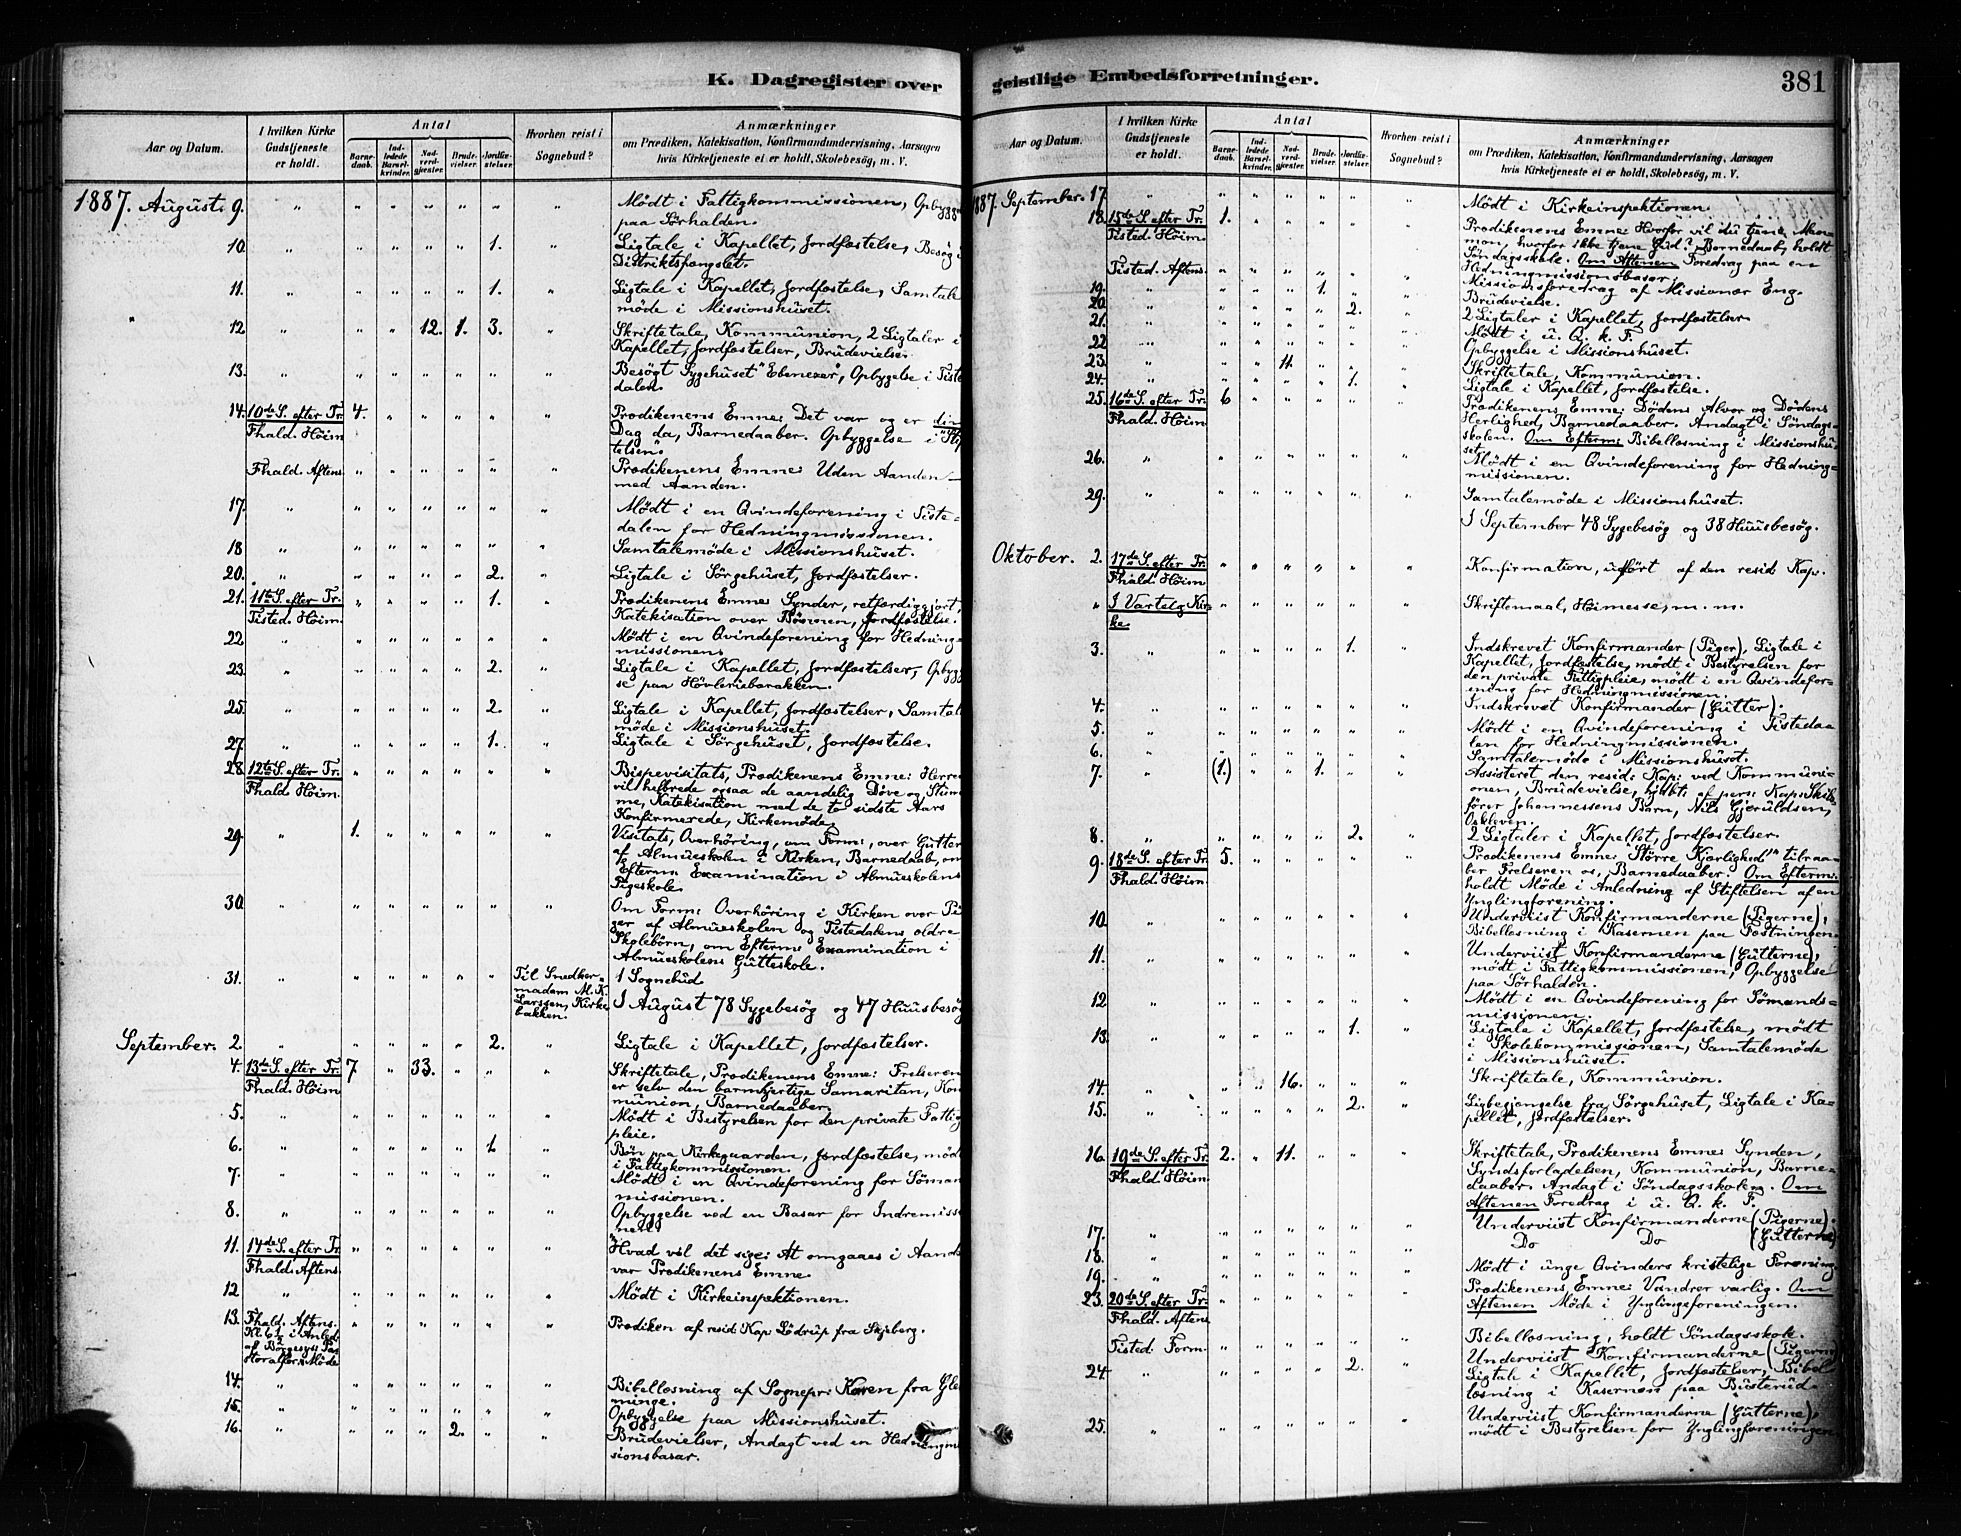 K. Dagregister over
Aar og Datum.
I hvilken Kirke Gudstjeneste er holdt.
Antal
Barnedaab.
Indledede Barselkvinder.
Nadverdgjester.
Brudevielser.
Jordfæstelser.
Hvorhen reist i Sognebud?
Anmærkninger
om Prædiken, Katekisation, Konfirmandundervisning, Aarsagen
hvis Kirketjeneste ei er holdt, Skolebesøg, m. V.
1887. August. 9. Mödt i Fattigkommissionen, Opbygg
paa Sörhalden.
10. 1. Ligtale i Kapellet, Jordfæstelse, Besög i
Distriktsfængslet.
11. 1. Ligtale i Kapellet, Jordfæstelse, Samtale
möde i Missionshuset.
12 12. 1. 3. Skriftetale, Kommunion, 2 Ligtaler i
Kapellet, Jordfæstelser, Brudevielse.
13. Besögt Sygehuset "Ebenezer", Opbyggelse i Tiste
dalen.
14. 10de S. efter Tr. 4. Prædikenens Emne: Det var og er din
Fhald. Höim. Dag da, Barnedaaber. Opbyggelse i "Stif
telsen".
Fhald. Aftens. Prædikenens Emne: Uden Aanden —
med Aanden.
17. Mödt i en Qvindeforening i Tiste-
dalen for Hedningmissionen.
18 Samtalemöde i Missionshuset.
20. 2. Ligtale i Sörgehuset, Jordfæstelser.
21. 11te S. efter Tr. 1. Prædikenens Emne: Synder, retfærdiggjort,
Tisted. Höim. Katekisation over Bönnen, Jordfæstelse.
22 Mödt i en Qvindeforening for Hedning-
missionen.
23. 2. Ligtale i Kapellet, Jordfæstelser, Opbygg
se paa Hövleribarakken.
25. 2. Ligtale i Kapellet, Jordfæstelser, Samtal
möde i Missionshuset.
27 1. Ligtale i Sörgehuset, Jordfæstelse.
28 12te S. efter Tr. Bispevisitats, Prædikenens Emne: Herre
Fhald. Höim. vil helbrede ogsaa de aandelig Döve og Stum
me, Katekisation med de to sidste Aars
Konfirmerede, Kirkemöde.
29. 1. Visitats, Overhöring, om Form:, over Gutter
af Almueskolen i Kirken, Barnedaab, om
Efterm: Examination i Almueskolens
Pigeskole.
30. Om Form: Overhöring i Kirken over Pi
ger af Almueskolen og Tistedalens ældre
Skolebörn, om Efterm: Examination i
Almueskolens Gutteskole.
31. Til Snedker-
madam M. K.
Larssen, Kirke
bakken. 1 Sognebud
I August 78 Sygebesög og 47 Huusbesög
September. 2. 2. Ligtale i Kapellet, Jordfæstelser.
4. 13de S. efter Tr. 7 33. Skriftetale, Prædikenens Emne: Frelseren
Fhald. Höim. er selv den barmhjertige Samaritan, Kom
munion, Barnedaaber.
5. Mödt i Bestyrelsen for den private Fattig
pleie.
6. 1. Bön paa Kirkegaarden, Jordfæstelse, möd
i Fattigkommissionen.
7. Mödt i en Qvindeforening for Söman
missionen.
8. Opbyggelse ved en Basar for Indremiss
nen.
11. 14de S. efter Tr. "Hvad vil det sige: At omgaaes i Aand
Fhald. Aftens. var Prædikenens Emne.
12 Mödt i Kirkeinspektionen.
13. Fhald. Aftens.
Kl. 6½ i Anled.
af Borgesys. Pas
toralfor: Möde Prædiken af resid. Kap. Lödrup fra Skjeberg.
14. Bibellæsning af Sognepr: Koren fra Gle
minge.
15. Opbyggelse paa Missionshuset.
16. 2. Brudevielser, Andagt ved en Hedningmi
sionsbasar.
geistlige Embedsforretninger.
381
Aar og Datum.
I hvilken Kirke Gudstjeneste er holdt.
Antal
Barnedaab.
Indledede Barselkvinder.
Nadverdgjester.
Brudevielser.
Jordfæstelser.
Hvorhen reist i Sognebud?
Anmærkninger
om Prædiken, Katekisation, Konfirmandundervisning, Aarsagen
hvis Kirketjeneste ei er holdt, Skolebesøg, m. V.
1887. September. 17. Mödt i Kirkeinspektionen
18. 15de S. efter Tr. 1. Prædikenens Emne: Hvorfor vil du tjene Mam
Tisted. Höim. mon, hvorfor ikke tjene Gud? Barnedaab, holdt
Söndagsskole. Om Aftenen Foredrag paa en
Hedningmissionsbasar.
Tisted. Aftens. Missionsforedrag af Missionær Eng.
19. 1. Brudevielse.
20. 2. 2 Ligtaler i Kapellet, Jordfæstelser
21. Mödt i u. Q. k. F.
22 Opbyggelse i Missionshuset.
23. 11. Skriftetale, Kommunion.
24. 1. Ligtale i Kapellet, Jordfæstelse.
25. 16de S. efter Tr. 6 Prædikenens Emne: Dödens Alvor og Dödens
Fhald. Höim. Herlighed, Barnedaaber. Andagt i Söndags-
skolen. Om Efterm: Bibellæsning i Missionshu
set.
26. Mödt i en Qvindeforening for Hedning-
missionen.
29. Samtalemöde i Missionshuset.
I September 48 Sygebesög og 38 Huusbesög.
Oktober. 2. 17de S. efter Tr. Konfirmation, udfört af den resid. Kap.
Fhald. Höim.
" I Varteig Kir-
ke. Skriftemaal, Höimesse, m. m.
3. 1. Indskrevet Konfirmander (Piger), Ligtale i
Kapellet, Jordfæstelse, mödt i Bestyrelsen for
den private Fattigpleie, mödt i en Qvindefor-
ening for Hedningmissionen.
4. Indskrevet Konfirmander (Gutter).
5. Mödt i en Qvindeforening i Tistedaa-
len for Hedningmissionen.
6. Samtalemöde i Missionshuset.
7. (1.) 1. Assisteret den resid: Kap: ved Kommuni-
onen, Brudevielse, hjdbt: af pers: Kap: Skib-
förer Johannessens Barn, Nils Gjeruldsen,
Oskleven.
8. 2. 2 Ligtaler i Kapellet, Jordfæstelser.
9. 18de S. efter Tr. 5. Prædikenens Emne: Större Kjærlighed tilraa-
Fhald. Höim. ber Frelseren os, Barnedaaber. Om Efterm:
holdt Möde i Anledning af Stiftelsen af en
Ynglingforening.
10. Underviist Konfirmanderne (Pigerne),
Bibellæsning i Kasernen paa Fæstningen.
11. Underviist Konfirmanderne (Gutterne),
mödt i Fattigkommissionen, Opbyggelse
paa Sörhalden.
12 Mödt i en Qvindeforening for Sömands-
missionen.
13. 1. Ligtale i Kapellet, Jordfæstelse, mödt
i Skolekommissionen, Samtalemöde
i Missionshuset.
14. 16. Skriftetale, Kommunion.
15. 2. Ligbegjængelse fra Sörgehuset, Ligtale i Ka-
pellet, Jordfæstelser.
16. 19de S. efter Tr. 2. 11. Skriftetale, Prædikenens Emne: Synden,
Fhald. Höim. Syndsforladelsen, Kommunion, Barne-
daaber. Andagt i Söndagsskolen. Om
Aftenen Foredrag i u. Q. k. F.
17. Underviist Konfirmanderne (Pigerne).
18. Do Do (Gutterne)
19. Mödt i unge Qvinders kristelige Forening.
23. 20de S. efter Tr. Prædikenens Emne: Vandrer varlig. Om
Fhald. Aftens. Aftenen Möde i Ynglingeforeningen.
Tisted. Form. Bibellæsning, holdt Söndagsskole.
24. 2. Underviist Konfirmanderne (Pigerne)
Ligtale i Kapellet, Jordfæstelser, Bibel
læsning i Kasernen paa Busterud.
25. Underviist Konfirmanderne (Gutterne),
mödt i Bestyrelsen for Ynglingforeningen